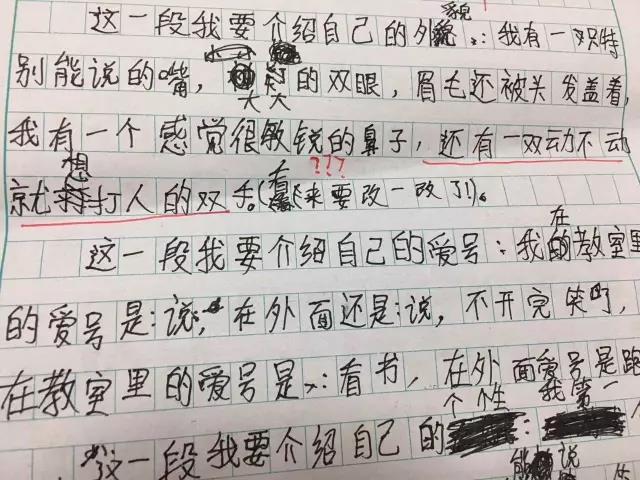 这一段我要介绍自己的外貌:我有一双特
别能说的嘴,大大的双眼,眉毛还被头发盖着,
我有一个感觉很敏锐的鼻子,还有一双动不动
???
就想打人的双手。(看来要改一改了!)。
这一段我要介绍自己的爱号:我在教室里
的爱号是:说,在外面还是:说,不开完笑啊,
在教室里的爱号是:看书,在外面爱号是跑
这一段我要介绍自己的个性:我第一
能说